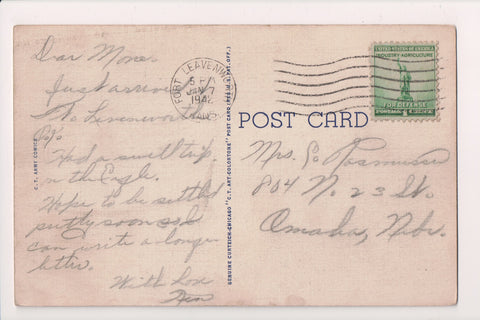 Dear Mom.
Just arrived
To Leavenworth
Had a swell trip
on the Eagle.
Hope to be settled
pretty soon so I
can write a longer
letter.
With Love
C. T. ARMY COMICS
GENUINE CURTEICH-CHICAGO "C. T. ART-COLORTONE" POST CARD (REG. U.S. PAT. OFF.)
FORT LEAVENWORTH
5 PM
JAN 7
1942
KANS
POST CARD
UNITED STATES OF AMERICA
INDUSTRY AGRICULTURE
FOR DEFENSE
Mrs. P. Rasmussen
804 N. 23 St.
Omaha, Nebr.